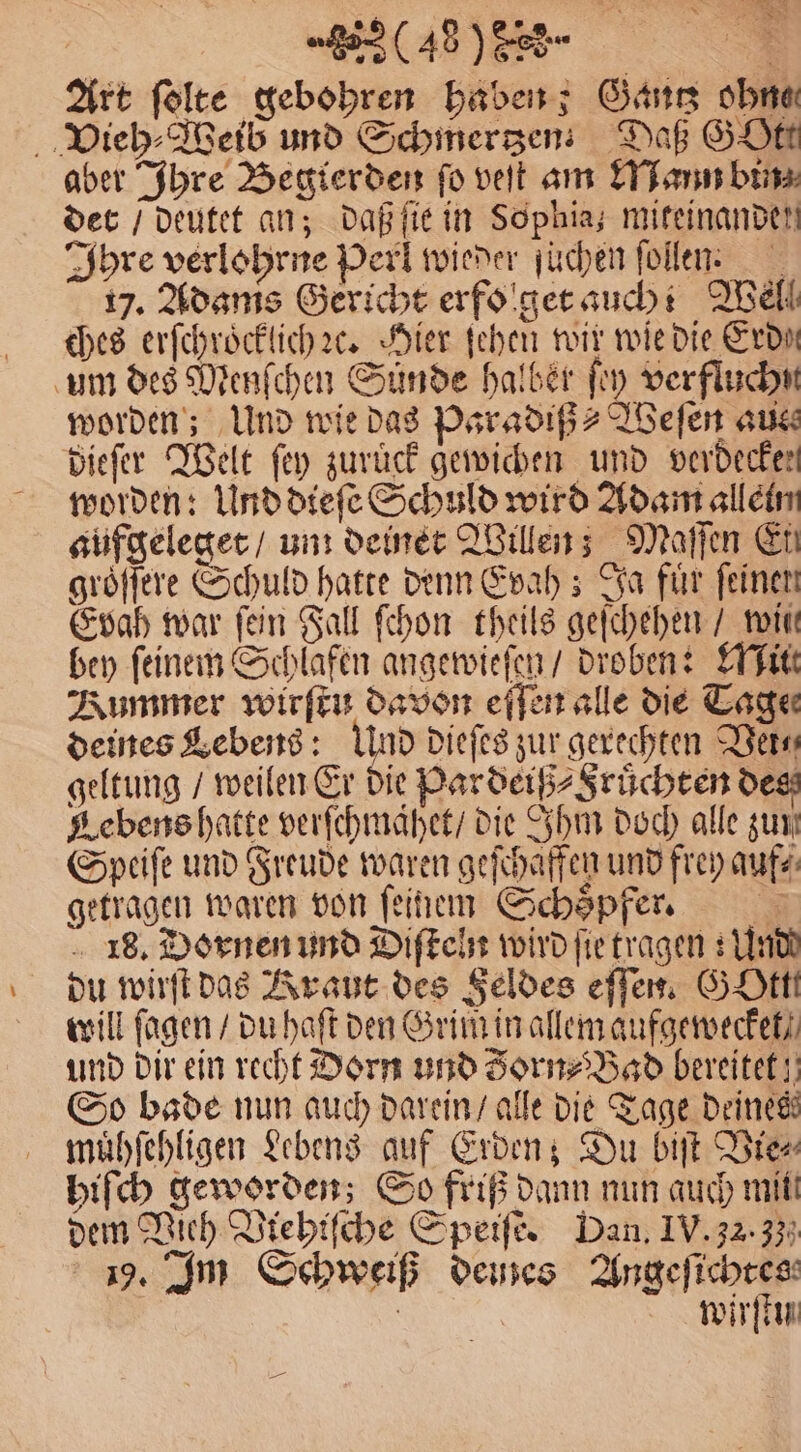 (48)
Art ſolte gebohren haben; Gantz ohne
Vieh-Weib und Schmertzen: Daß GOtt
aber Ihre Begierden ſo veſt am Mann bin-
det / deutet an; daß ſie in Sophia; miteinander
Ihre verlohrne Perl wieder ſuchen ſollen.
17. Adams Gericht erfolget auch: Wel-
ches erſchröcklich ꝛc. Hier ſehen wir wie die Erde
um des Menſchen Sünde halber ſey verflucht
worden; Und wie das Paradiß-Weſen aus
dieſer Welt ſey zurück gewichen und verdecket
worden: Und dieſe Schuld wird Adam allein
aufgeleget / um deinet Willen; Maſſen Er
gröſſere Schuld hatte denn Evah; Ja für ſeiner
Evah war ſein Fall ſchon theils geſchehen / wie
bey ſeinem Schlafen angewieſen / droben: Mit
Kummer wirſtu davon eſſen alle die Tage
deines Lebens: Und dieſes zur gerechten Ver-
geltung / weilen Er die Pardeiß-Früchten des
Lebens hatte verſchmähet / die Ihm doch alle zur
Speiſe und Freude waren geſchaffen und frey auf-
getragen waren von ſeinem Schöpfer.
18. Dornen und Diſteln wird ſie tragen: Und
du wirſt das Kraut des Feldes eſſen. GOtt
will ſagen / du haſt den Grim̃ in allem aufgewecket /
und dir ein recht Dorn und Zorn-Bad bereitet;
So bade nun auch darein / alle die Tage deines
mühſehligen Lebens auf Erden; Du biſt Vie-
hiſch geworden; So friß dann nun auch mit
dem Vieh Viehiſche Speiſe. Dan. IV. 32. 33.
19. Im Schweiß deines Angeſichtes
wirſtu